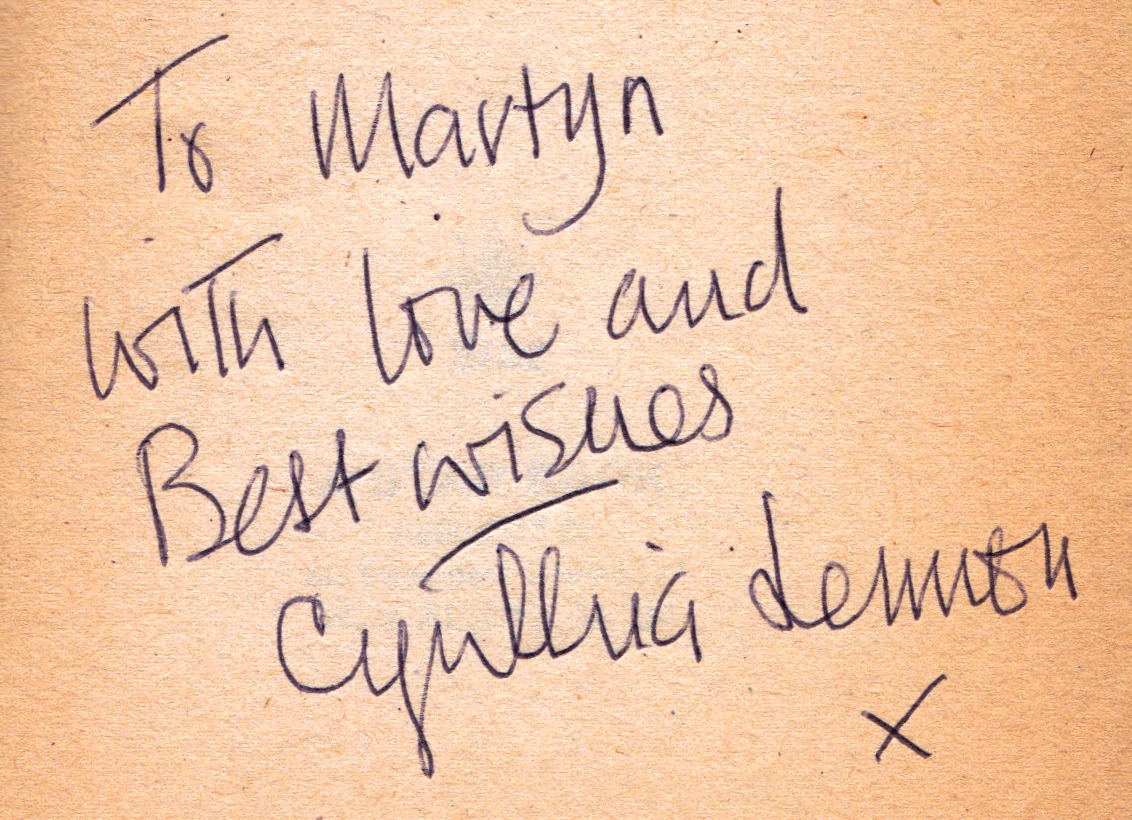 To Martyn
with love and
Best wishes
Cynthia Lennon
x